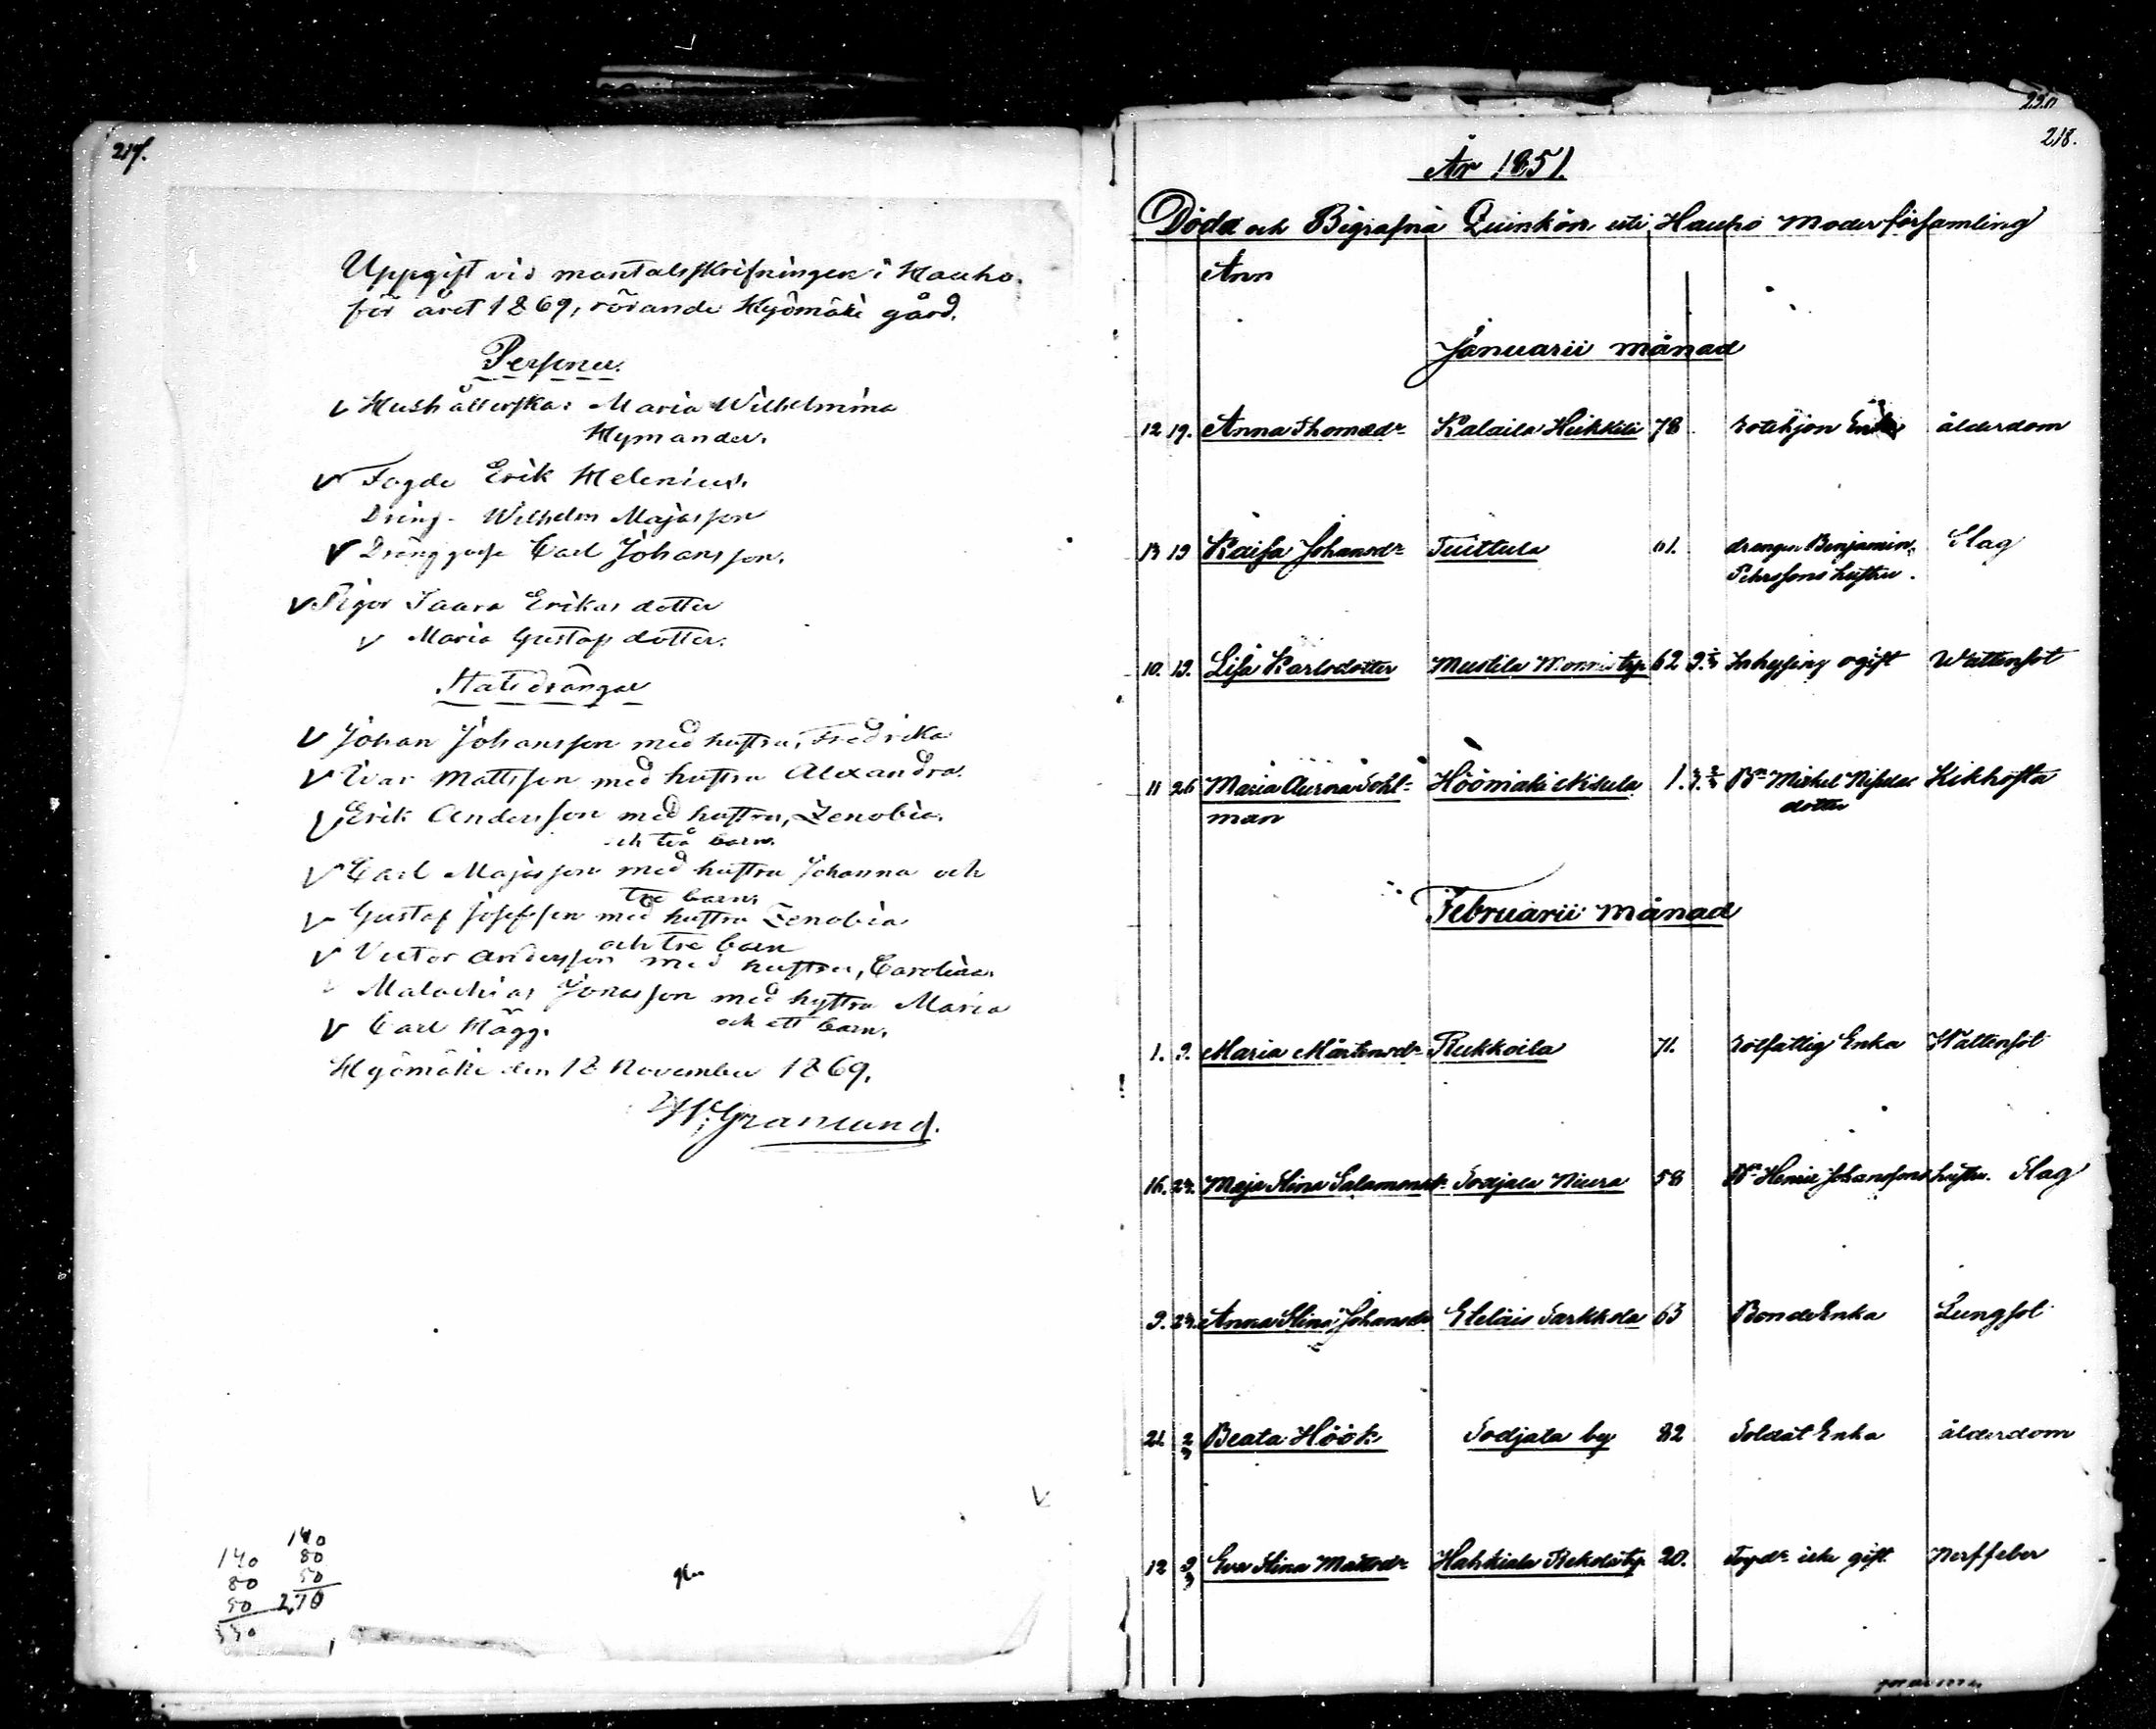 217.
Uppgift vid mantalsskrifningen i Hauho
för året 1869, rörande Hyömäki gård.
Personer.
v Hushållerska: Maria Wilhelmina
Hymander.
v Fogde Erik Helenius.
Dreng. Wilhelm Majasson
v Dränggosse Carl Johansson.
v Pigor Saara Erikas dotter
v Maria Gustafs dotter.
Statsdrängar
v Johan Johansson med hustru, Fredrika
v Ivar Mattsson med hustru Alexandra.
v Erik Andersson med hustru, Zenobia.
och två barn.
v Carl Majasson med hustru Johanna och
tre barn.
v Gustaf Josefsson med hustru Zenobia
och tre barn
v Victor Andersson med hustru, Carolina.
Malachias Jonasson med hustru Maria
och ett barn.
v Carl Hägg.
Hyömäki den 18 November 1869.
Granlund.
140
140 80
80 50
50 270
220
218.
År 1851.
Döda och Begrafna Quinkön uti Hauho Moderförsamling
Ann
Januarii månad
12 19. Anna Thomædr Kalaila Heikkilä 78 Rotehjon Enka ålderdom
13 19 Kaisa Johansdr Tuittula 61. drengen Benjamin Slag
Pehrssons hustru.
10. 19. Lisa Karlsdotter Mustila Monnis tp 62 Inhysing ogift Wattensot
11 26 Maria Aurora Sohl- Höömäki Nisula 1. Bn Mickel Nisulas Kikhosta
man dotter
Februarii månad
1. 9. Maria Mårtensdr Rukkoila 71. Rotfattig Enka Wattensot
16. 23. Maja Stina Salamonsdr Sodjala Niura 58 Henric Johanssons hustru. Slag
9. 23. Anna Stina Johansdr Eteläis Sarkkola 63 Bonde Enka Lungsot
21 2/3 Beata Höök Sodjala by 82 Soldat Enka ålderdom
12 9/3 Eva Stina Mattsdr Hahkiala Rekola tp 20. Torpdr icke gift Nerffeber